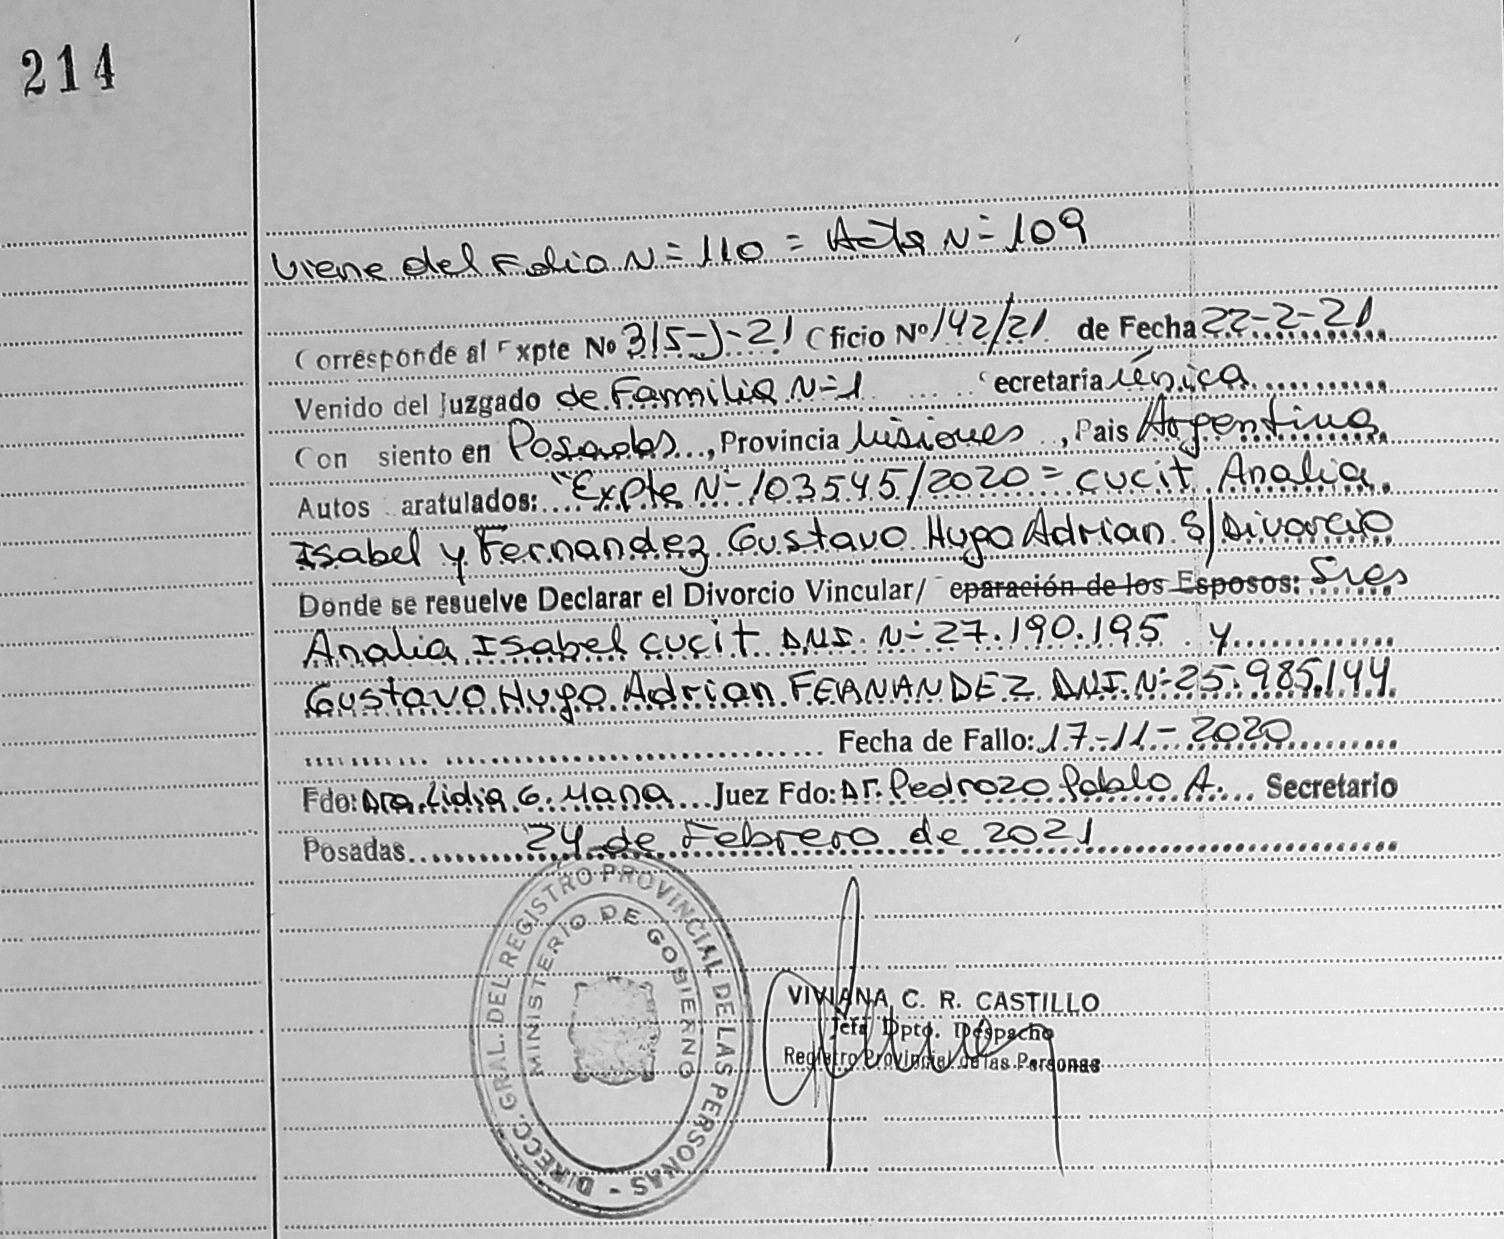 214
Viene del Folio N= 110 = Acta N= 109
Corresponde al Expte No 315-J-21 Oficio No 142/21 de Fecha 22-2-21
Venido del Juzgado de Familia N=1 Secretaría única
Con siento en Posadas, Provincia Misiones, Pais Argentina
Autos aratulados: "Expte N- 103545/2020 = Cucit Analia
Isabel y Fernandez Gustavo Hugo Adrian S/ Divorcio
Donde se resuelve Declarar el Divorcio Vincular/ eparación de los Esposos: Sres
Analia Isabel Cucit DNI. N- 27.190.195 y
Gustavo Hugo Adrian FERNANDEZ DNI. N- 25.985.144
Fecha de Fallo: 17-11-2020
Fdo: Dra. Lidia G. Juez Fdo: Dr. Pedrozo Pablo A. Secretario
Posadas 24 de Febrero de 2021
DIRECC. GRAL. DEL REGISTRO PROVINCIAL DE LAS PERSONAS -
MINISTERIO DE GOBIERNO
VIVIANA C. R. CASTILLO
Jefa Dpto. Despacho
Registro Provincial de las Personas